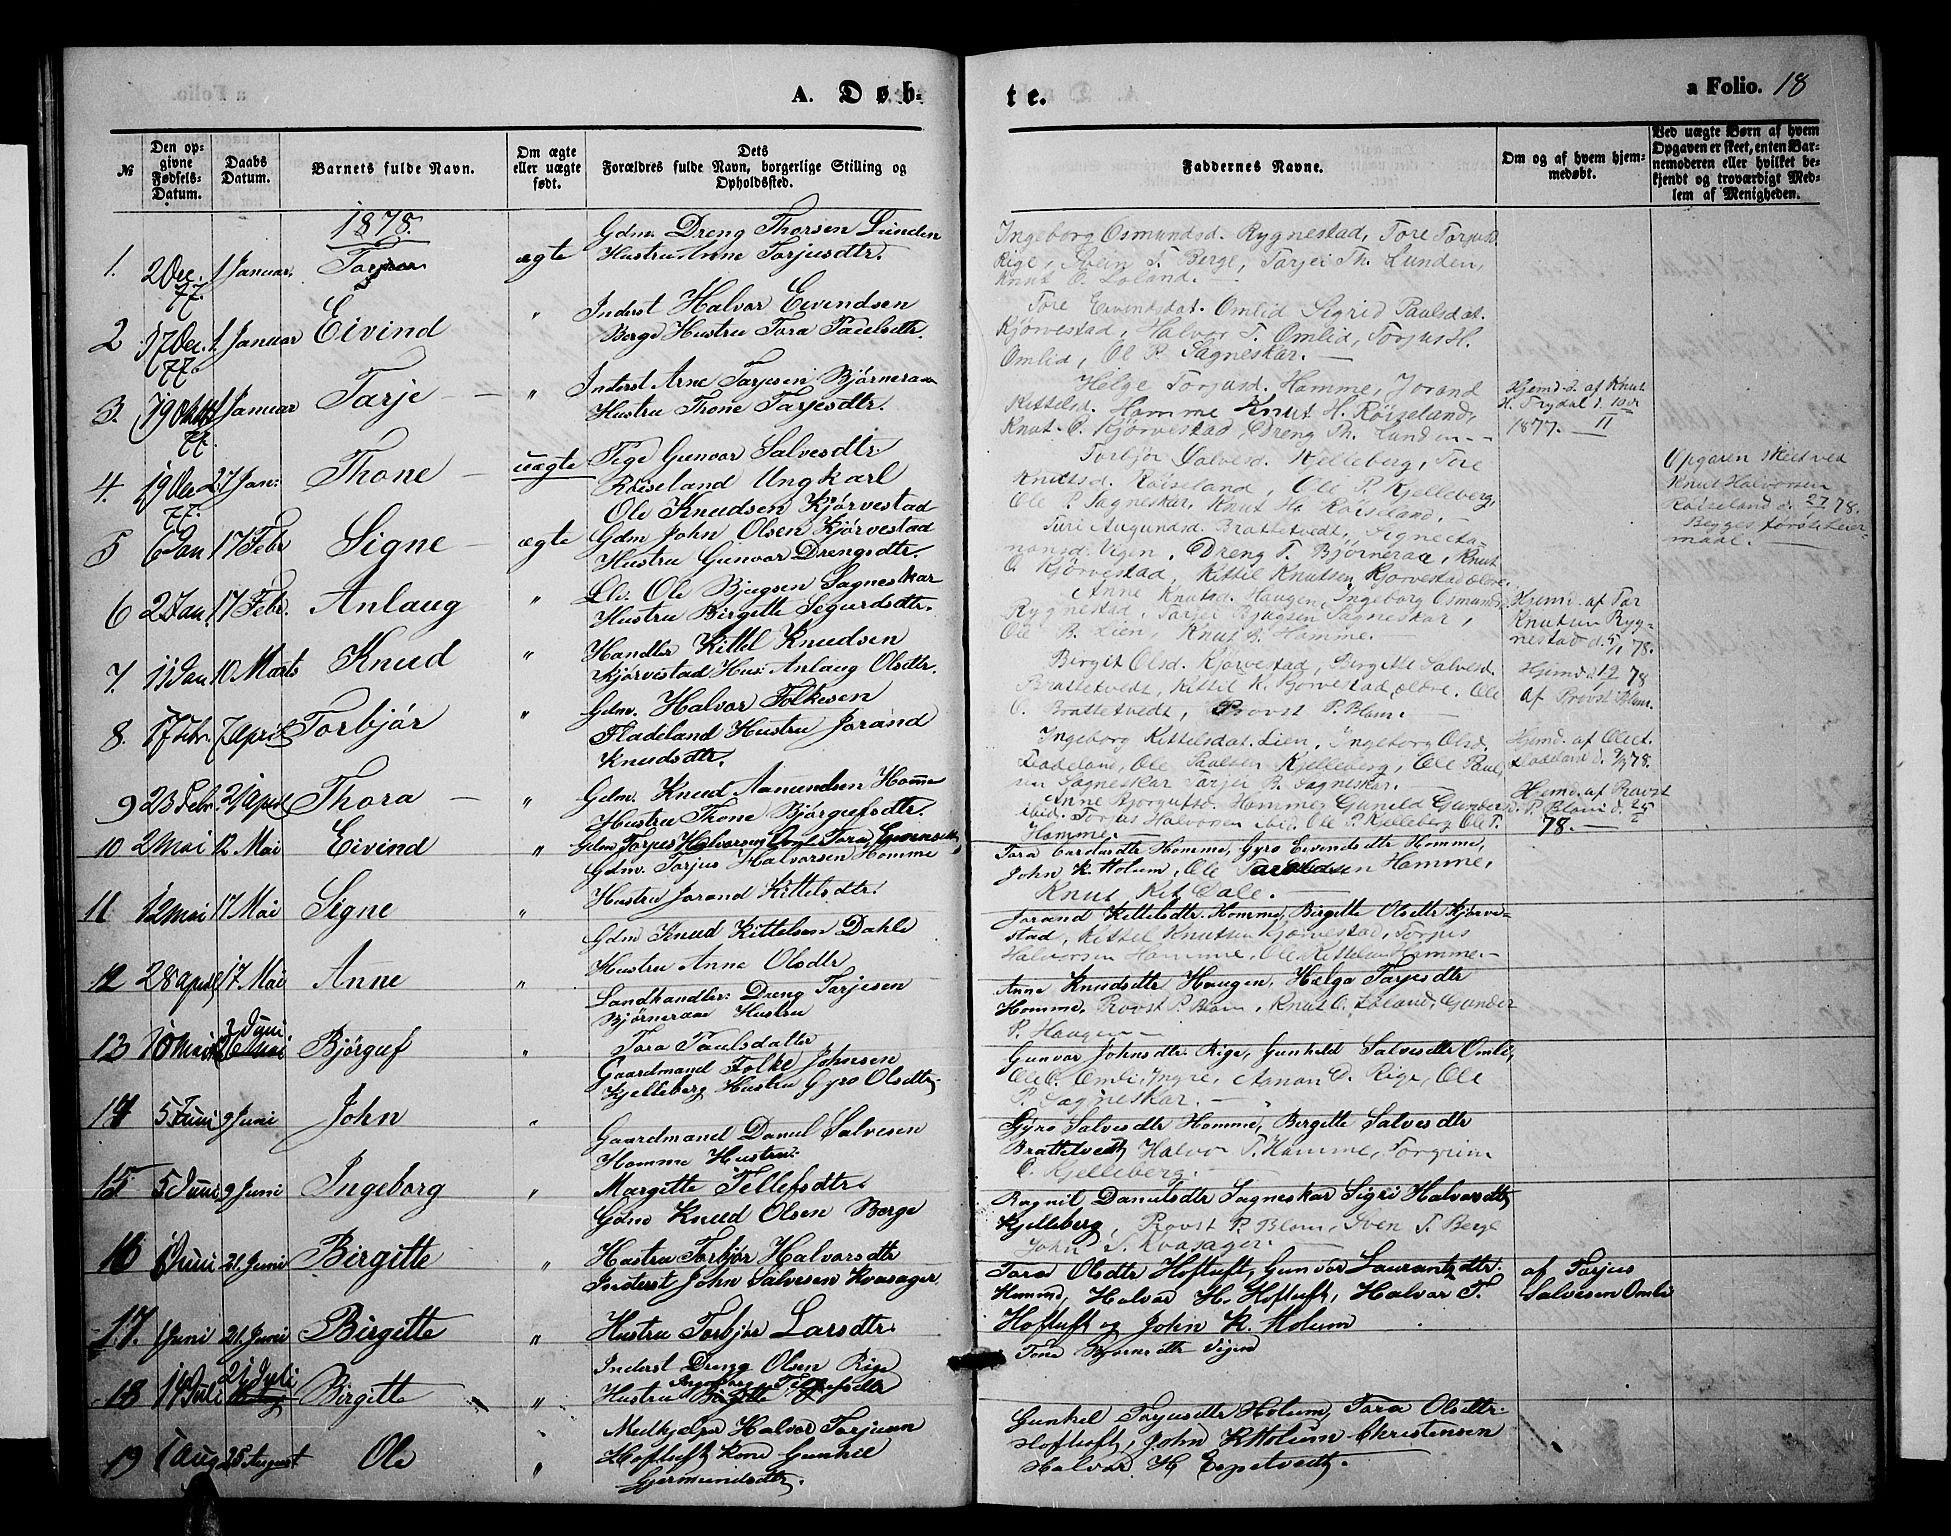 A. Døb-
te.
a Folio. 18
№
Den opgivne Fødsels-Datum.
Daabs Datum.
Barnets fulde Navn.
Om ægte eller uægte født.
Dets Forældres fulde Navn, borgerlige Stilling og Opholdssted.
Faddernes Navne.
Om og af hvem hjemmedøbt.
Ved uægte Børn af hvem Opgaven er skeet, enten Barnemoderen eller hvilket bekjendt og troværdigt Medlem af Menigheden.
1878.
1. 2 Dec. 77. 1 Januar. ægte
Gdm. Dreng Thorsen Lunden
Hustru Anne Tarjusdtr.
Ingeborg Osmundsd. Rygnestad, Tore Torjusd.
Rige, T. Berge, Tarjei Th. Lunden,
Knut O. Loland.
2 17 Dec. 77. 1 Januar Eivind "
Inderst Halvor Eivindsen
Berge Hustru Tara Paulsdtr.
Tore Eivindsdat. Omlid Sigrid Paulsdat.
Kjørvestad, Halvor T. Omlid, Torjus H.
Omlid, Ol P. Sagneskar.
3. 19 77. 1 Januar Tarje "
Inderst Arne Tarjesen Bjørneraa
Hustru Thone Tarjesdtr.
Helge Torjusd. Homme, Jorand
Kittelsd. Homme Knut H. Røiseland,
Knut O. Kjørvestad, Dreng Th. Lunden
Hjemd. af Knut
H. Trydal d.
1877.
4. 19 Dec 77. 27 Jan: Thone uægte
Pige Gunvor Salvesdtr.
Røiseland Ungkarl
Ole Knudsen Kjørvestad
Torbjør Salvesd. Kjelleberg, Tore
Knutsd. Røiseland, Ole P. Kjelleberg,
Ole P. Sagneskar, Knut H. Røiseland.
Opgaven skeet ved
Knut Halvorsen
Røiseland d. 78.
Begges første Leiermaal.
5 6 Jan 17 Febr Signe ægte
Gdm John Olsen Kjørvestad
Hustru Gunvor Drengsdtr.
Turi Augundsd. Brattetvedt, Signe
Vigen, Dreng T. Bjørneraa, Knut
O. Kjørvestad, Kittil Knutsen Kjørvestad ældre.
6 2 Jan 17 Febr. Anlaug "
Ole Bjugsen Sagneskar
Hustru Birgitte Segurdsdtr.
Anne Knutsd. Haugen, Ingeborg Osmundsd.
Rygnestad, Tarjei Bjugsen Sagneskar,
Ole B. Lien, Knut B. Homme.
Hjemd. af Tor
Knutsen Rygnestad
d. 78.
7. 11 Jan 10 Marts Knud "
Handler Kittel Knudsen
Kjørvestad Hus: Anlaug Olsdtr.
Bergit Olsd. Kjørvestad, Birgitte Salvesd.
Brattetvedt, Kittil K. Kjørvestad ældre. Ole
O. Brattetvedt, Provst P. Blom.
Hjemd. 78
af Provst Blom.
8. 17 Febr. 7 April Torbjør "
Gdm. Halvor Folkesen
Fladeland Hustru Jorand
Knudsdtr.
Ingeborg Kittelsdat. Lien, Ingeborg Olsd.
Ole Paulsen Kjelleberg, Ole Paulsen
Sagneskar Tarjei B. Sagneskar.
Hjemd. af Ole
78.
9 23 Febr. 21 April Thora "
Gdm. Knud Aamundsen Homme
Hustru Thone Bjørgufsdtr.
Anne Bjorgufsd. Homme, Gunild
ibid. Torjus Halvorsen ibid. Ole P. Kjelleberg Ole T.
Homme.
Hjemd. af Provst
P. Blom d.
78.
10 2 Mai 12 Mai Eivind "
Gdm Torjus Halvorsen Tara
Tara Homme, Gyro Eivindsdtr Homme,
John K. Holum, Ole Homme,
Knut Kit. Dale.
11 12 Mai 17 Mai Signe "
Gdm. Torjus Halvorsen Homme
Hustru Jorand Kittelsdtr.
Jorand Kittelsdtr. Homme, Birgitte Olsdtr Kjørvestad,
Kittel Knutsen Kjørvestad, Torjus
Halvorsen Homme, Ole Kittelsen Homme.
12 28 April 17 Mai Anne "
Gdm Knud Kittelsen Dahle
Hustru Anne Olsdtr
Anne Knudsdtr Haugen, Helga Tarjesdtr
Homme, Provst P. Blom, Knut O. Loland, Gunder
P. Haugen
13 10 Mai 2 Juni Bjørguf "
Landhandler: Dreng Tarjesen
Bjørneraae Hustru
Tara Paulsdatter
Gunvor Johnsdtr. Rige, Gunhild Salvesdtr Omli,
Ole O. Omli, Aanon D. Rige, Ole
P. Sagneskar.
14 5 Juni 9 Juni John "
Gaardmand Folke Johnsen
Kjelleberg Hustru Gyro Olsdtr.
Gyro Salvesdtr Homme, Birgitte Salvesdtr
Brattetvedt, Halvor T. Homme, Torgrim
O. Kjelleberg.
15 5 Juni 9 Juni Ingeborg "
Gaardmand Daniel Salvesen
Homme Hustru:
Margitte Tellefsdtr.
Ragnil Danielsdtr Sagneskar Sigri Halvorsdtr
Kjelleberg, Provst P. Blom, Sven T. Berge
John S. Kvasager.
16 1 Juni 21 Juni Birgitte "
Gdm Knud Olsen Berge
Hustru Torbjør Halvorsdtr
Tara Olsdtr Hoftuft, Gunvor Laurantzdtr.
Homme, Halvor H. Hoftuft, Halvor T.
Hoftuft og John K. Holum
af Tarjus
Salvesen Omli
17. 1 Juni 21 Juni Birgitte "
Inderst John Salvesen Kvasager
Hustru Torbjør Larsdtr.
Tone Bjørnsdtr Vigen
18 14 Juli 21 Juli Birgitte "
Inderst Dreng Olsen Rige
Hustru Ingeborg Tellefsdtr
19 1 Aug 25 August Ole "
Medhjelper Halvor Torjusen
Hoftuft kone Gunhil
Gjermundsdtr.
Gunhil Torjusdtr Holum, Tara Olsdtr.
Hoftuft, John K Holum Christensen
Halvor H Espetvedt.